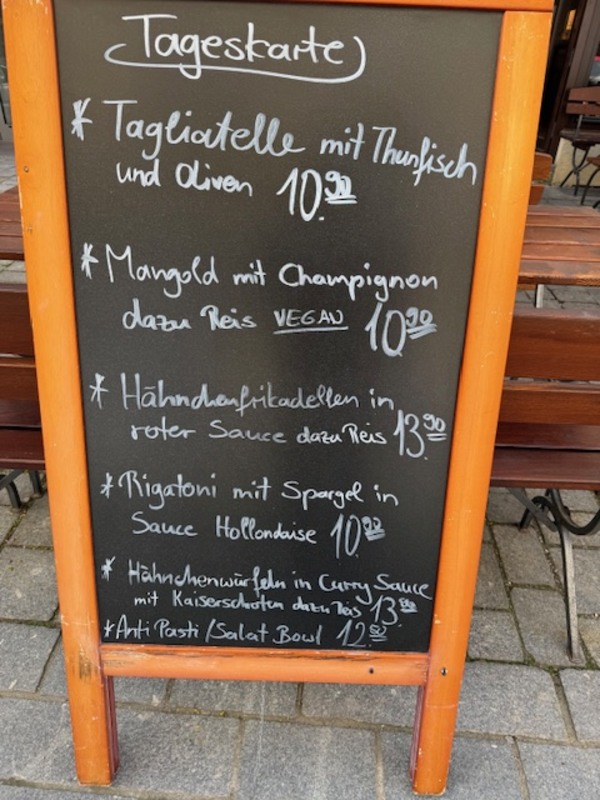 Tageskarte
* Tagliatelle mit Thunfisch
und Oliven 10.90
* Mangold mit Champignon
dazu Reis VEGAN 10.90
* Hähnchenfrikadellen in
roter Sauce dazu Reis 13.90
* Rigatoni mit Spargel in
Sauce Hollondaise 10.90
* Hähnchenwürfeln in Curry Sauce
mit Kaiserschoten dazu Reis 13.
* Anti Pasti/Salat Bowl 12.50